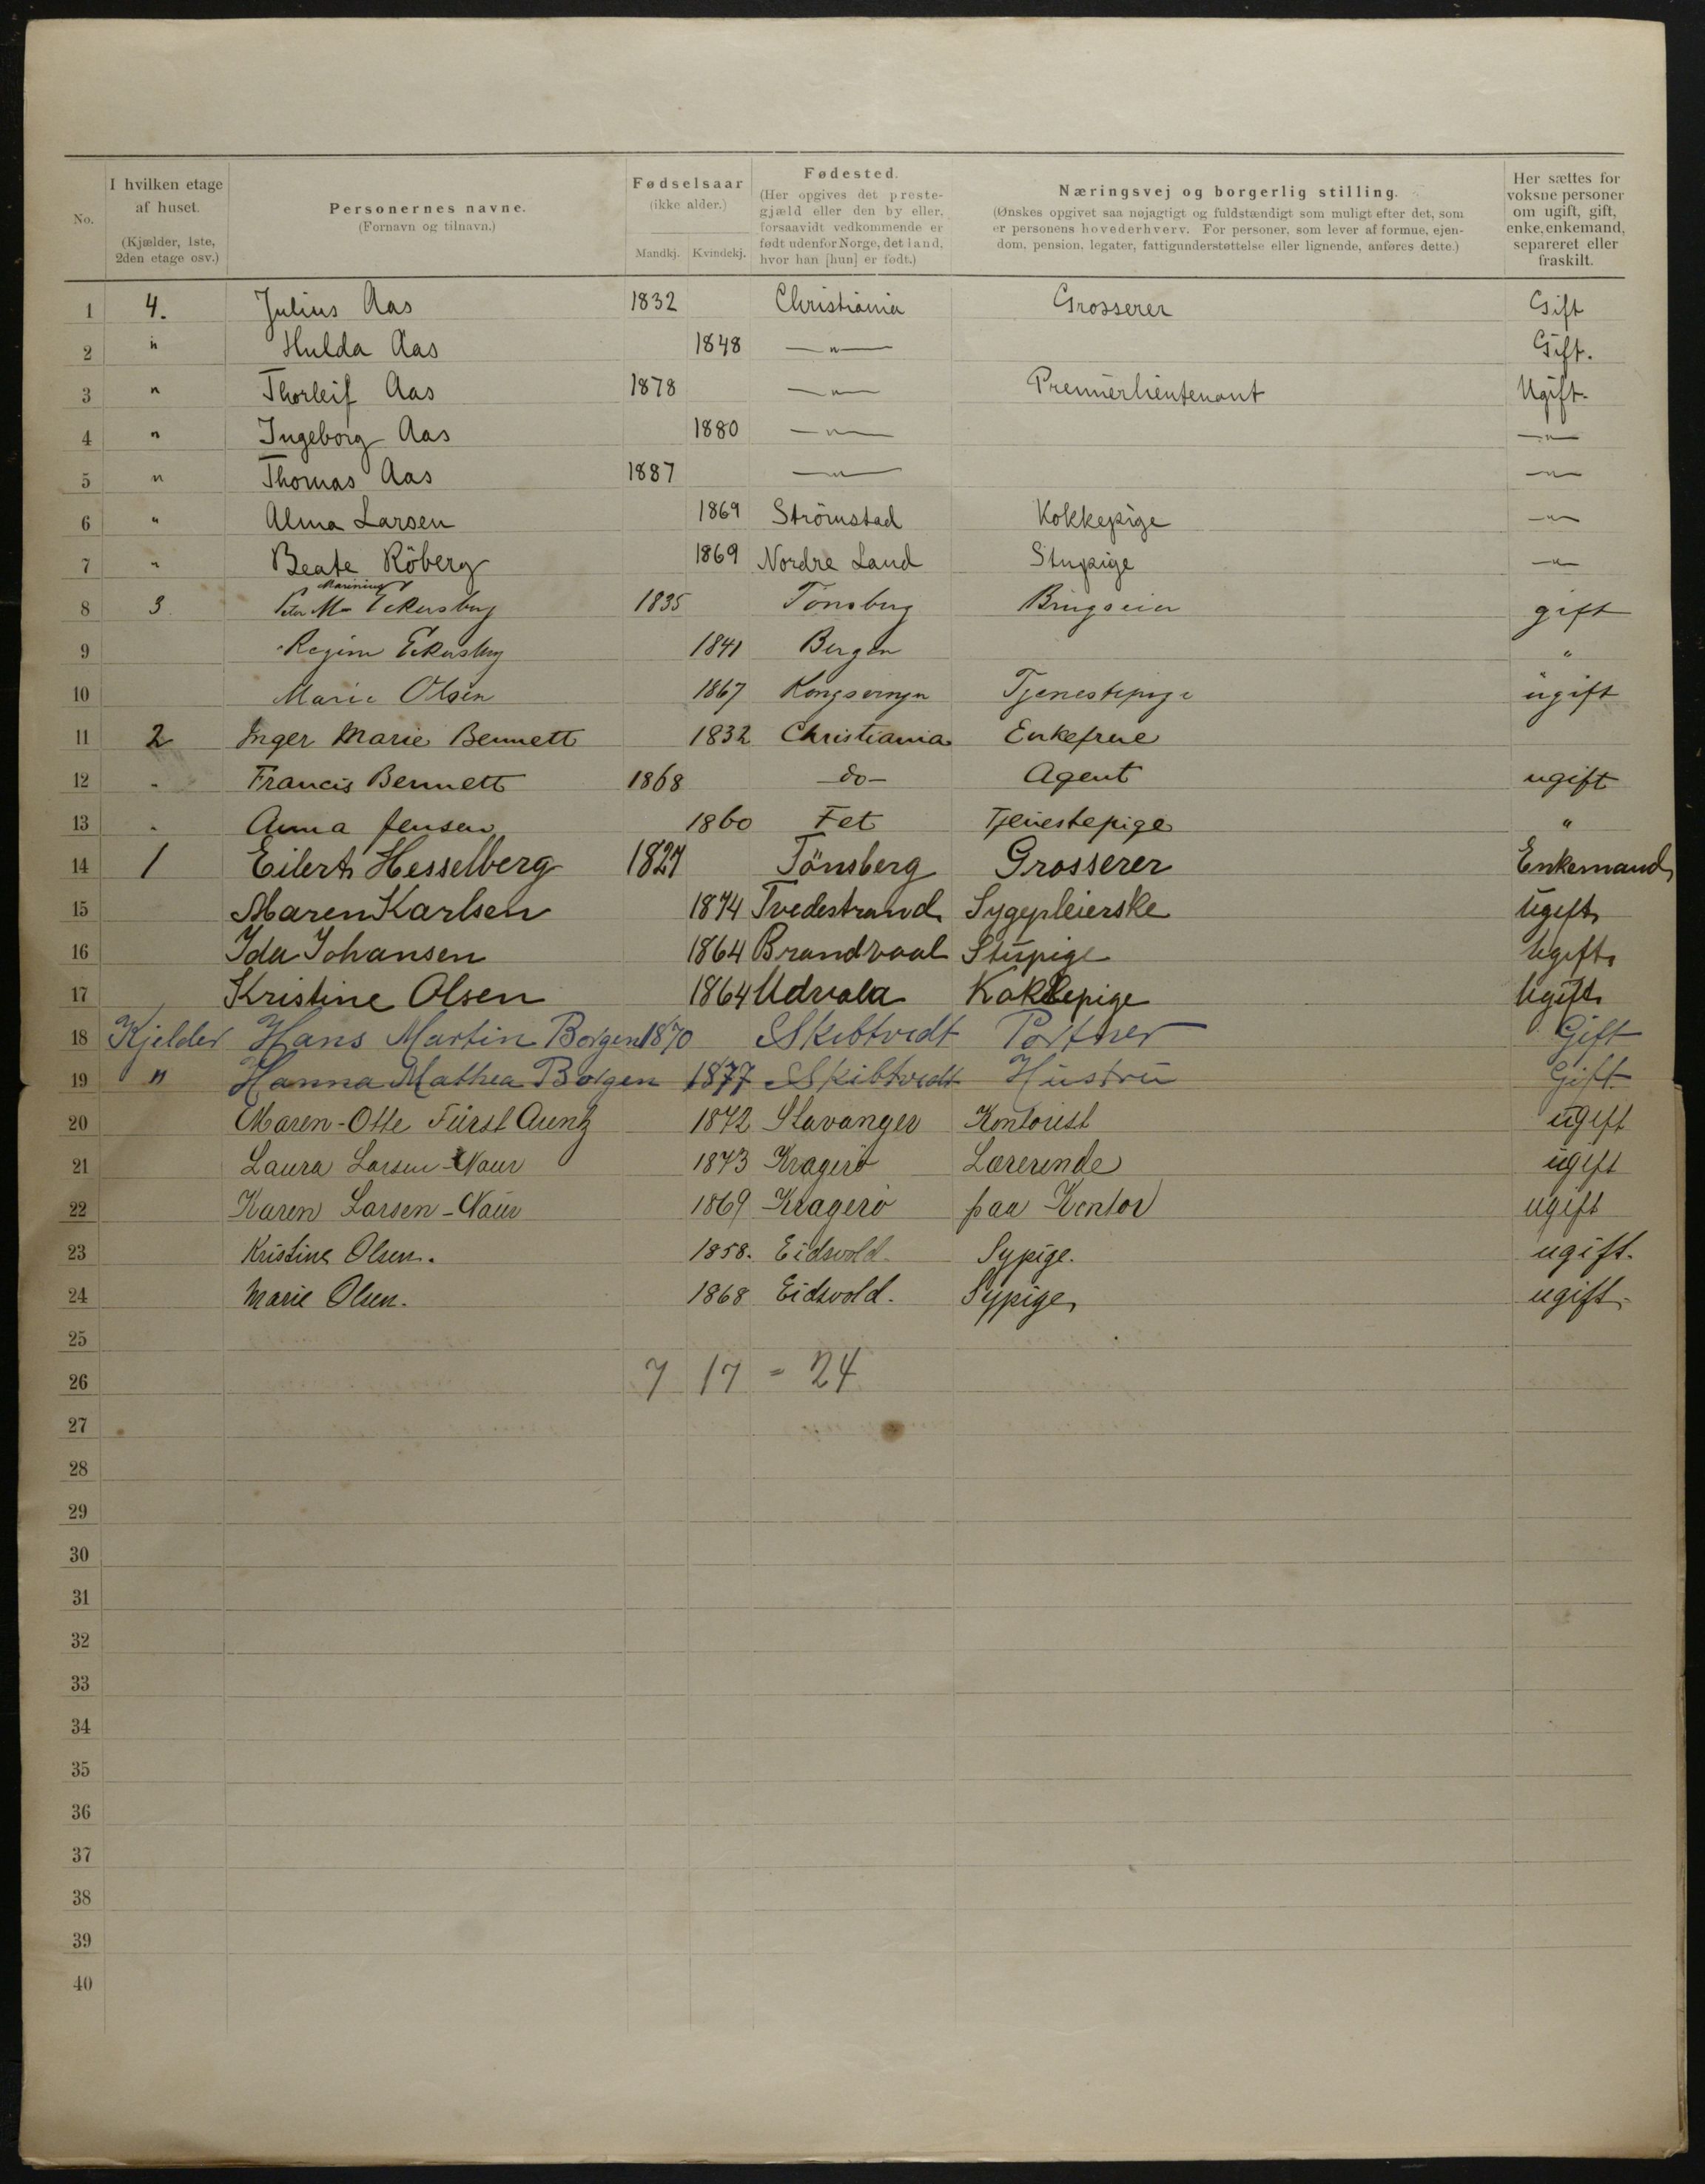 No. | I hvilken etage af huset. (Kjælder, 1ste, 2den etage osv.) | Personernes navne. (Fornavn og tilnavn.) | Fødselsaar (ikke alder.) Mandkj. Kvindekj. | Fødested. (Her opgives det prestegjæld eller den by eller, forsaavidt vedkommende er født udenfor Norge, det land, hvor han [hun] er født.) | Næringsvej og borgerlig stilling. (Ønskes opgivet saa nøjagtigt og fuldstændigt som muligt efter det, som er personens hovederhverv. For personer, som lever af formue, ejendom, pension, legater, fattigunderstøttelse eller lignende, anføres dette.) | Her sættes for voksne personer om ugift, gift, enke, enkemand, separeret eller fraskilt.
1 4. Julius Aas 1832 Christiania Grosserer Gift
2 " Hulda Aas 1848 —"— Gift.
3 " Thorleif Aas 1878 —"— Premierlieutenant Ugift.
4 " Ingeborg Aas 1880 —"— —"—
5 " Thomas Aas 1887 —"— —"—
6 " Alma Larsen 1869 Strömstad Kokkepige —"—
7 " Beate Röberg 1869 Nordre Land Stupige —"—
8 3 Peter M Eckersberg 1835 Tønsberg gift
9 Regine Eckersberg 1841 Bergen "
10 Marie Olsen 1867 Kongsvinger Tjenestepige ugift
11 2 Inger Marie Bennett 1832 Christiania Enkefrue
12 " Francis Bennett 1868 -do- Agent ugift
13 " Anna Jensen 1860 Fet Tjenestepige "
14 1 Eilert Hesselberg 1827 Tönsberg Grosserer Enkemand
15 Maren Karlsen 1874 Tvedestrand Sygepleierske Ugift
16 Ida Johansen 1864 Brandvaal Stupige Ugift
17 Kristine Olsen 1864 Udvala Kokkepige Ugift
18 Kjelder Hans Martin Borgen 1870 Skibtvedt Portner Gift
19 " Hanna Mathea Borgen 1877 Skibtvedt Hustru Gift
20 Maren-Otte Fürst 1872 Stavanger Kontorist ugift
21 Laura Larsen-Naur 1873 Kragerö Lærerinde ugift
22 Karen Larsen-Naur 1869 Kragerö paa Kontor ugift
23 Kristine Olsen. 1858. Eidsvold Sypige. ugift.
24 Marie Olsen. 1868 Eidsvold. Sypige ugift.
25
26 7 17 = 24
27
28
29
30
31
32
33
34
35
36
37
38
39
40